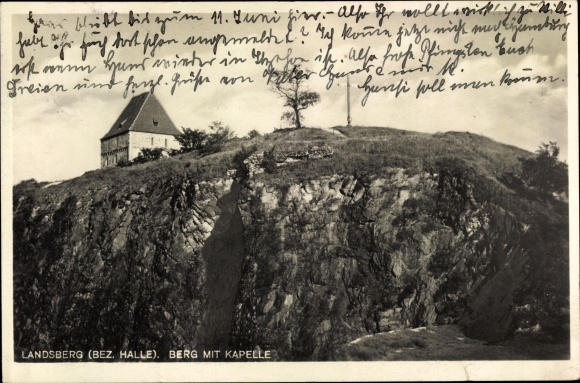 Hans bleibt bis zum 11. Juni hier. – Also Ihr wollt wirklich zu Willi
habt Ihr Euch dort schon angemeldet? Ich komme jetzt nicht nach Hamburg
erst wenn Hans wieder in ist. Also frohe Pfingsten Euch
Dreien und herzl. Grüße von Hans und
Hansi soll man komm.
LANDSBERG (BEZ. HALLE). BERG MIT KAPELLE